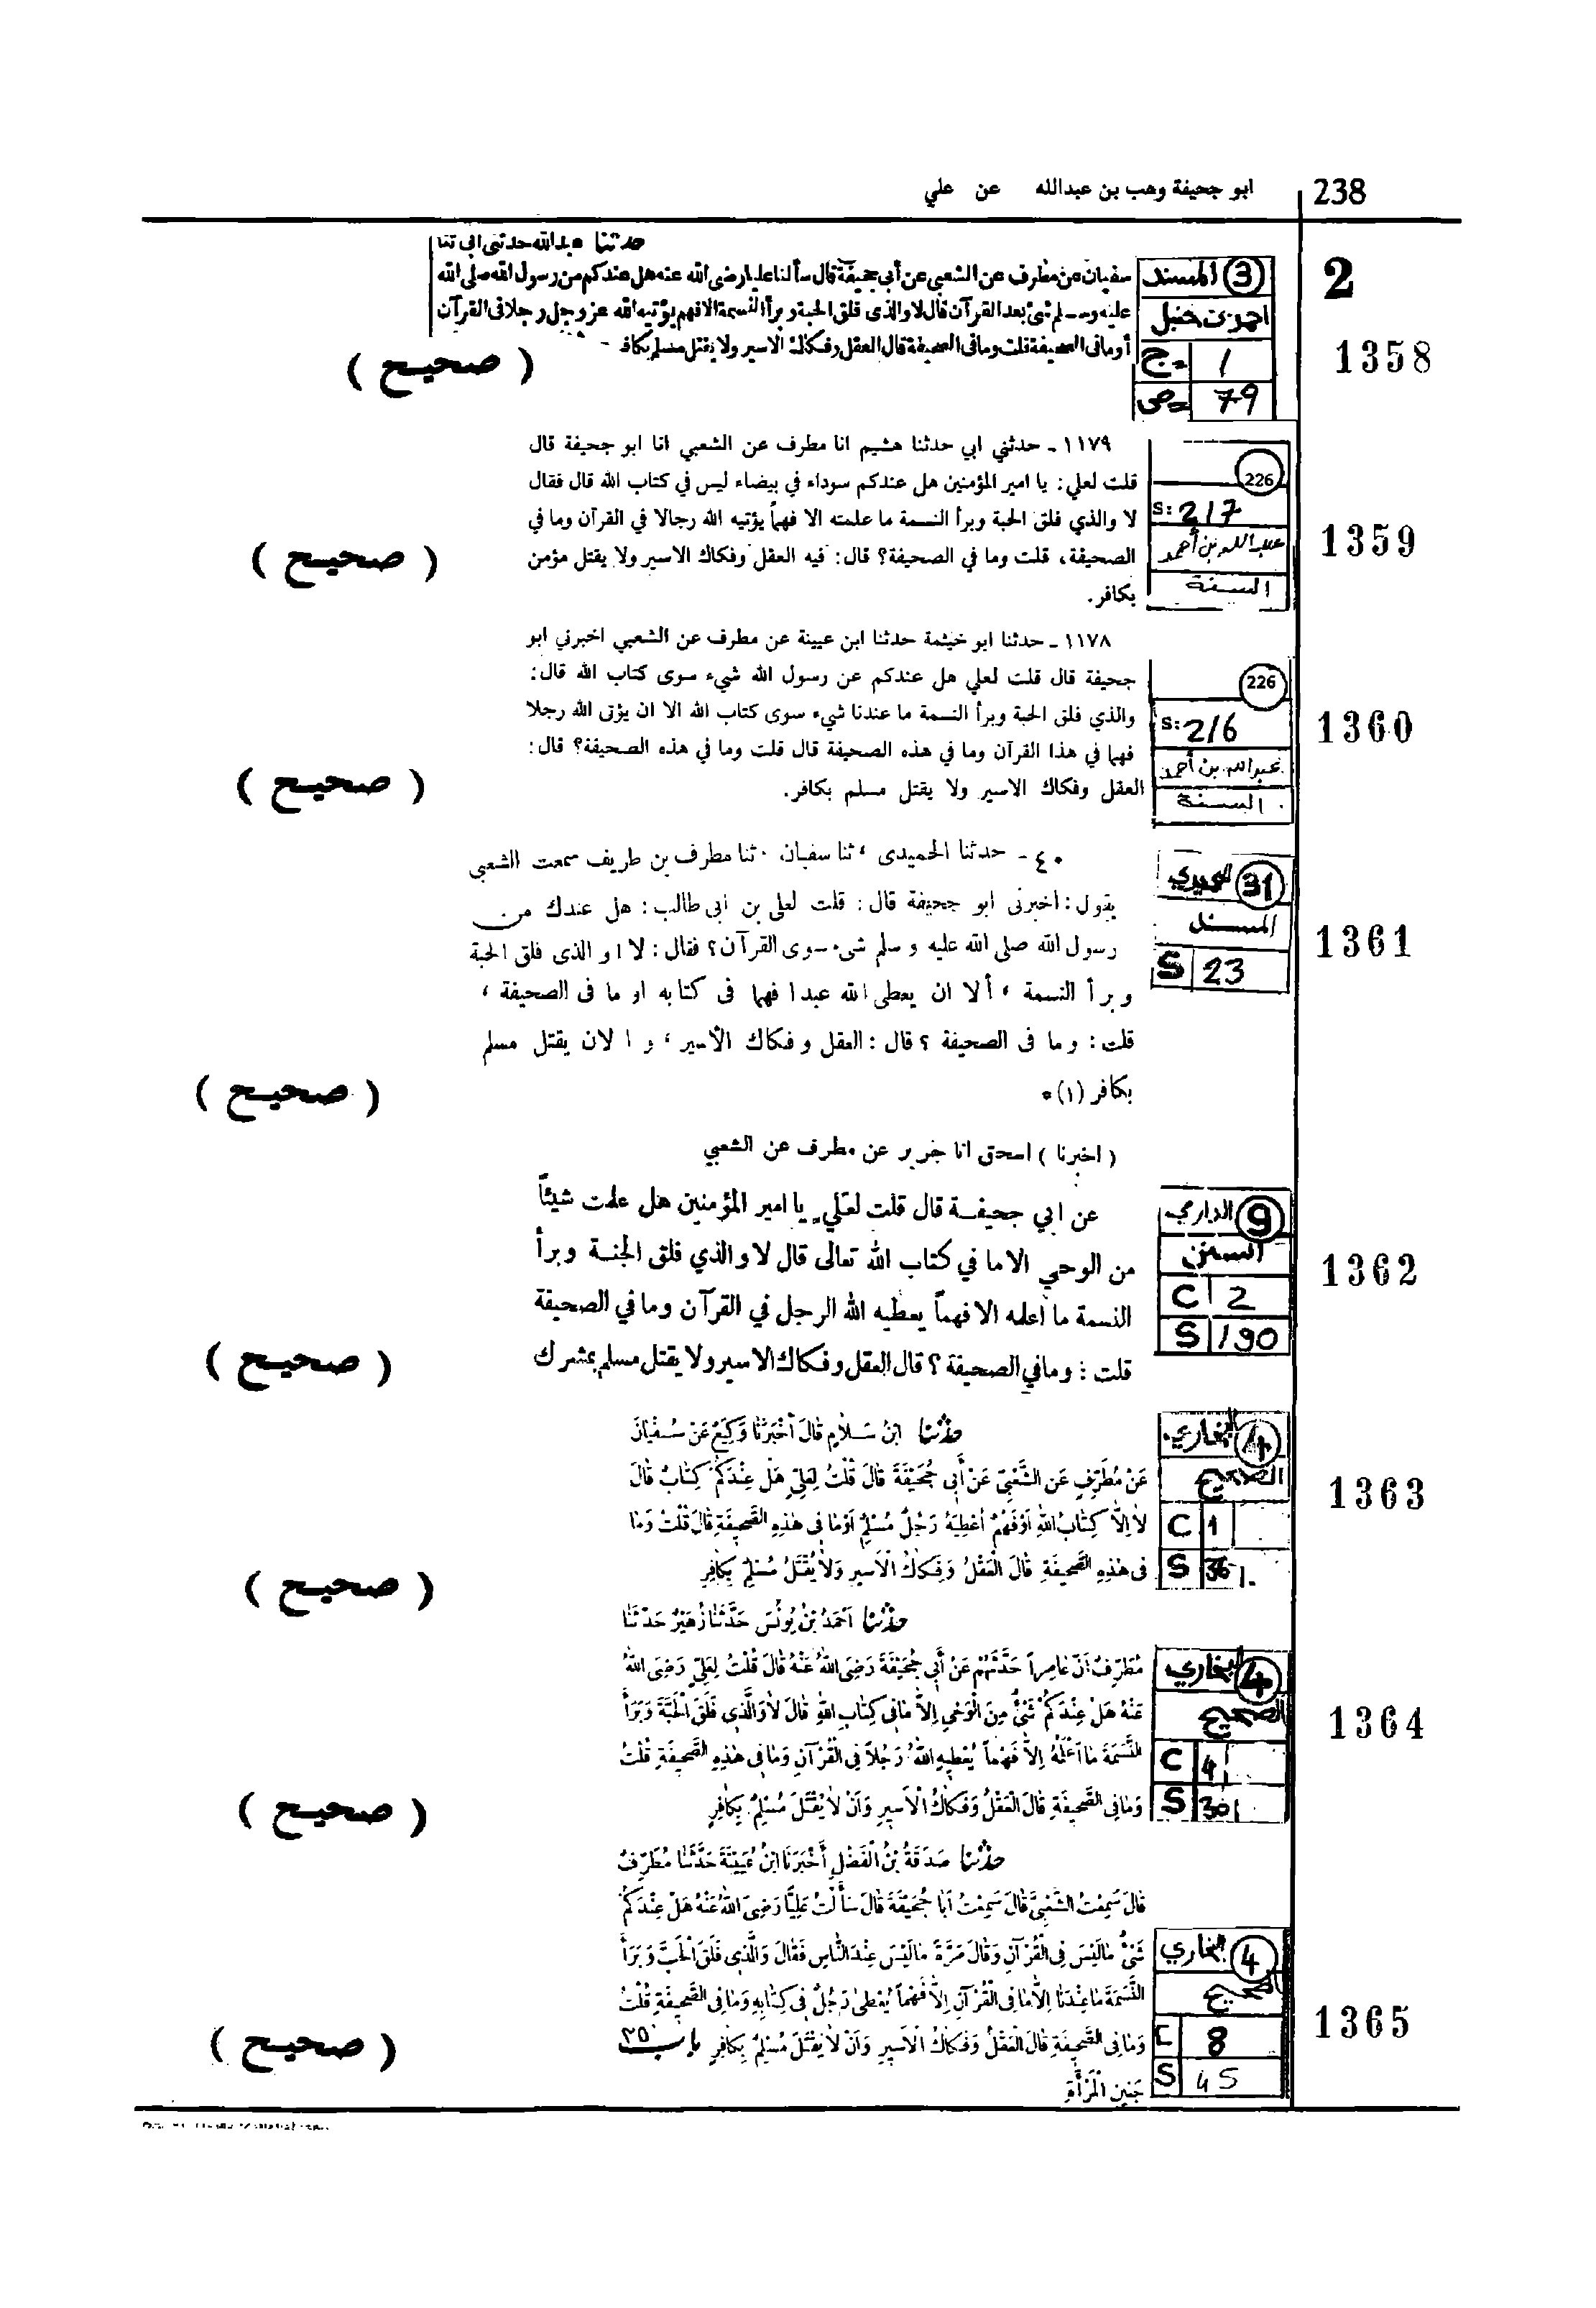 238
ابو جحيفة وهب بن عبدالله عن علي
2
حدثنا عبدالله حدثنى ابى ثنا
سفيان عن مطرف عن الشعبى عن أبى جحيفة قال سألنا عليا رضى الله عنه هل عندكم من رسول الله صلى الله
عليه وسلم شئ بعد القرآن قال لا والذى فلق الحبة وبرأ النسمة الا فهم يؤتيه الله عز وجل رجلا فى القرآن
أو ما فى الصحيفة قلت وما فى الصحيفة قال العقل وفكاك الاسير ولا يقتل مسلم بكافر
( صحيح )
3 المسند
احمد بن حنبل
ج 1
ص 79
1358
١١٧٩ - حدثني ابي حدثنا هشيم انا مطرف عن الشعبي انا ابو جحيفة قال
قلت لعلي: يا امير المؤمنين هل عندكم سوداء في بيضاء ليس في كتاب الله قال فقال
لا والذي فلق الحبة وبرأ النسمة ما علمته الا فهماً يؤتيه الله رجالا في القرآن وما في
الصحيفة، قلت وما في الصحيفة؟ قال: فيه العقل وفكاك الاسير ولا يقتل مؤمن
بكافر.
( صحيح )
226
S: 217
عبد الله بن أحمد
السنة
1359
١١٧٨ - حدثنا ابو خيثمة حدثنا ابن عيينة عن مطرف عن الشعبي اخبرني ابو
جحيفة قال قلت لعلي هل عندكم عن رسول الله شيء سوى كتاب الله قال:
والذي فلق الحبة وبرأ النسمة ما عندنا شيء سوى كتاب الله الا ان يؤتى الله رجلا
فهما في هذا القرآن وما في هذه الصحيفة قال قلت وما في هذه الصحيفة؟ قال:
العقل وفكاك الاسير ولا يقتل مسلم بكافر.
( صحيح )
226
S: 216
عبد الله بن أحمد
السنة
1360
٤٠ - حدثنا الحميدى ، ثنا سفيان ثنا مطرف بن طريف سمعت الشعبي
يقول: اخبرنى ابو جحيفة قال: قلت لعلى بن ابى طالب: هل عندك من
رسول الله صلى الله عليه و سلم شىء سوى القرآن؟ فقال: لا ا و الذى فلق الحبة
و برأ النسمة ، ألا ان يعطى الله عبدا فهما فى كتابه او ما فى الصحيفة ،
قلت: و ما فى الصحيفة ؟ قال: العقل و فكاك الأسير ، و ا لان يقتل مسلم
بكافر (١) *
( صحيح )
31 الحميدي
المسند
S 23
1361
( اخبرنا ) اسحق انا جرير عن مطرف عن الشعبي
عن ابي جحيفة قال قلت لعلي يا امير المؤمنين هل علمت شيئاً
من الوحي الا ما في كتاب الله تعالى قال لا والذي فلق الجنة وبرأ
النسمة ما اعلمه الا فهماً يعطيه الله الرجل في القرآن وما في الصحيفة
قلت : وما في الصحيفة ؟ قال العقل وفكاك الاسير ولا يقتل مسلم بمشرك
( صحيح )
9 الدارمي
السنن
C 2
S 190
1362
حَدَّثَنَا ابْنُ سَلَامٍ قَالَ أَخْبَرَنَا وَكِيعٌ عَنْ سُفْيَانَ
عَنْ مُطَرِّفٍ عَنِ الشَّعْبِيِّ عَنْ أَبِى جُحَيْفَةَ قَالَ قُلْتُ لِعَلِيٍّ هَلْ عِنْدَكُمْ كِتَابٌ قَالَ
لَا إِلَّا كِتَابُ اللهِ أَوْ فَهْمٌ أُعْطِيَهُ رَجُلٌ مُسْلِمٌ أَوْ مَا فِى هٰذِهِ الصَّحِيفَةِ قَالَ قُلْتُ وَمَا
فِى هٰذِهِ الصَّحِيفَةِ قَالَ الْعَقْلُ وَفَكَاكُ الْأَسِيرِ وَلَا يُقْتَلُ مُسْلِمٌ بِكَافِرٍ
( صحيح )
4 البخاري
الصحيح
C 1
S 36
1363
حَدَّثَنَا أَحْمَدُ بْنُ يُونُسَ حَدَّثَنَا زُهَيْرٌ حَدَّثَنَا
مُطَرِّفٌ أَنَّ عَامِراً حَدَّثَهُمْ عَنْ أَبِى جُحَيْفَةَ رَضِىَ اللهُ عَنْهُ قَالَ قُلْتُ لِعَلِيٍّ رَضِىَ اللهُ
عَنْهُ هَلْ عِنْدَكُمْ شَىْءٌ مِنَ الْوَحْىِ إِلَّا مَا فِى كِتَابِ اللهِ قَالَ لَا وَالَّذِى فَلَقَ الْحَبَّةَ وَبَرَأَ
النَّسَمَةَ مَا أَعْلَمُهُ إِلَّا فَهْماً يُعْطِيهِ اللهُ رَجُلاً فِى الْقُرْآنِ وَمَا فِى هٰذِهِ الصَّحِيفَةِ قُلْتُ
وَمَا فِى الصَّحِيفَةِ قَالَ الْعَقْلُ وَفَكَاكُ الْأَسِيرِ وَأَنْ لَا يُقْتَلَ مُسْلِمٌ بِكَافِرٍ
( صحيح )
4 البخاري
الصحيح
C 4
S 30
1364
حَدَّثَنَا صَدَقَةُ بْنُ الْفَضْلِ أَخْبَرَنَا ابْنُ عُيَيْنَةَ حَدَّثَنَا مُطَرِّفٌ
قَالَ سَمِعْتُ الشَّعْبِىَّ قَالَ سَمِعْتُ أَبَا جُحَيْفَةَ قَالَ سَأَلْتُ عَلِيًّا رَضِىَ اللهُ عَنْهُ هَلْ عِنْدَكُمْ
شَىْءٌ مَا لَيْسَ فِى الْقُرْآنِ وَقَالَ مَرَّةً مَا لَيْسَ عِنْدَ النَّاسِ فَقَالَ وَالَّذِى فَلَقَ الْحَبَّ وَبَرَأَ
النَّسَمَةَ مَا عِنْدَنَا إِلَّا مَا فِى الْقُرْآنِ إِلَّا فَهْماً يُعْطَى رَجُلٌ فِى كِتَابِهِ وَمَا فِى الصَّحِيفَةِ قُلْتُ
وَمَا فِى الصَّحِيفَةِ قَالَ الْعَقْلُ وَفَكَاكُ الْأَسِيرِ وَأَنْ لَا يُقْتَلَ مُسْلِمٌ بِكَافِرٍ باب ٢٥
جَنِينِ الْمَرْأَةِ
( صحيح )
4 البخاري
الصحيح
C 8
S 45
1365